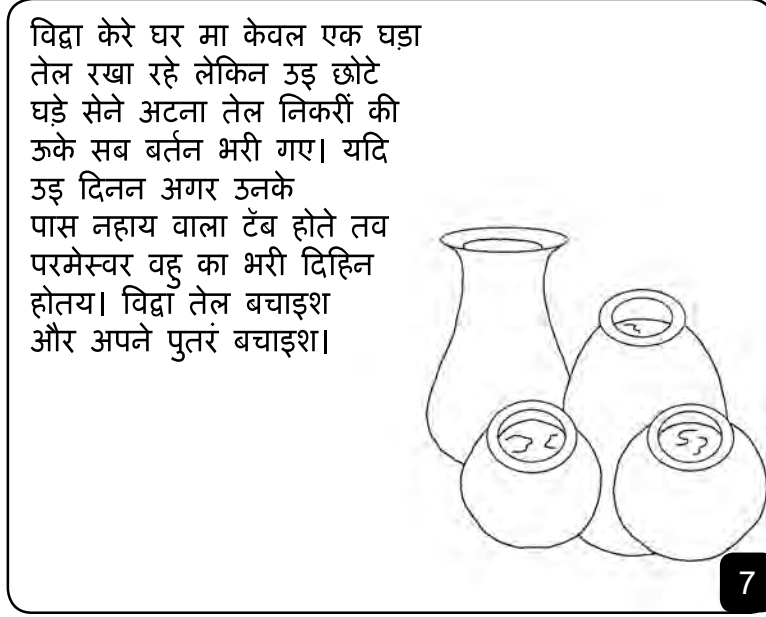 विद्वा केरे घर मा केवल एक घड़ा
तेल रखा रहे लेकिन उइ छोटे
घड़े सेने अटना तेल निकरीं की
ऊके सब बर्तन भरी गए। यदि
उइ दिनन अगर उनके
पास नहाय वाला टॅब होते तव
परमेस्वर वहु का भरी दिहिन
होतय। विद्वा तेल बचाइश
और अपने पुतरं बचाइश।
7